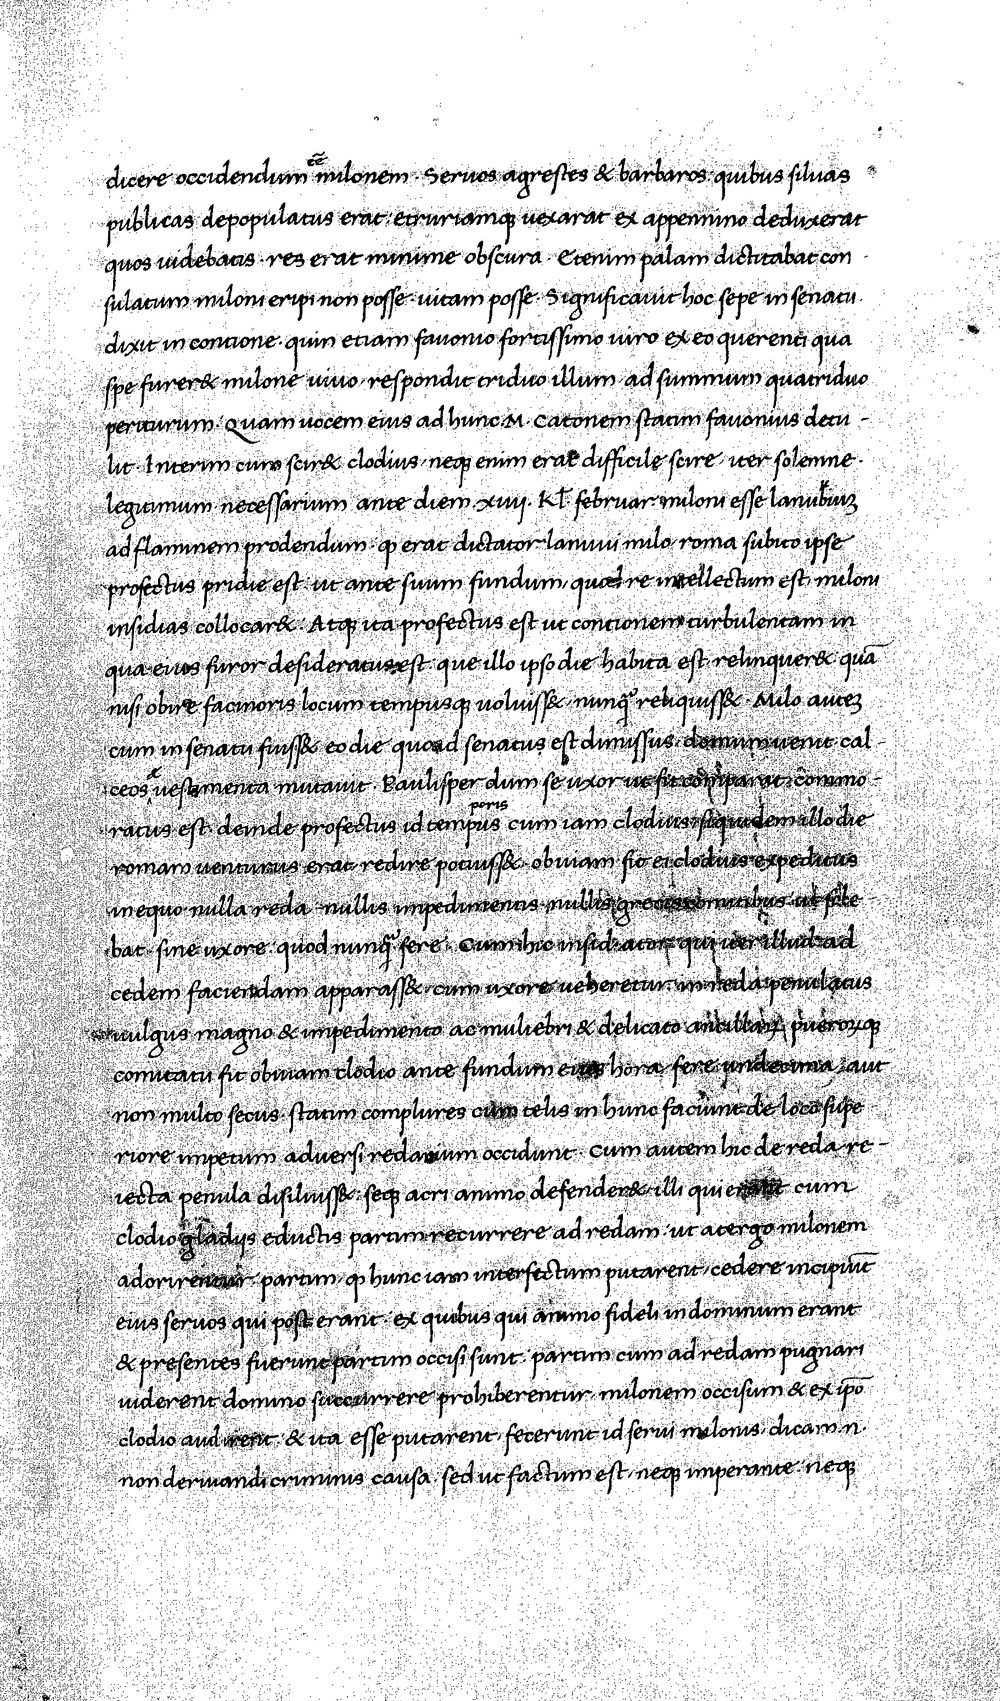 dicere occidendum eē milonem · Seruos agrestes & barbaros quibus siluas
publicas depopulatus erat · etruriamq; uexarat ex appennino deduxerat
quos uidebatis · res erat minime obscura · Etenim palam dictitabat con
sulatum miloni eripi non posse · uitam posse · Significauit hoc sepe in senatu ·
dixit in contione · quin etiam fauonio fortissimo uiro ex eo querenti qua
spe furer& milone uiuo · respondit triduo illum ad summum quatriduo
periturum · Quam uocem eius ad hunc · M · Catonem statim fauonius detu -
lit · Interim cum scir& clodius · neq; enim erat difficile scire · iter solemne ·
legitimum necessarium ante diem · xiiii · Kl̄ februar · miloni esse lanuuiuȝ
ad flaminem prodendum · qp erat dictator lanuui milo · roma subito ipse
profectus pridie est · ut ante suum fundum · quod re intellectum est · miloni
insidias collocar& · Atq; ita profectus est ut contionem turbulentam in
qua eius furor desideratus est · que illo ipso die habita est relinquer& · quā
nisi obire facinoris locum tempusq; uoluiss& · nunq̄ reliquiss& · Milo auteȝ
cum in senatu fuiss& eo die quoad senatus est dimissus · domum uenit · cal -
ceos & uestimenta mutauit · Paulisper dum se uxor ut fit comparat · commo -
ratus est · deinde profectus id tempus poris cum iam clodius · siquidem illo die
romam uenturus erat · redire potuiss& · obuiam fit ei clodius expeditus
in equo · nulla reda · nullis impedimentis · nullis grecis comitibus · ut sole -
bat · sine uxore · quod nunq̄ fere · Cum hic insidiator qui iter illud ad
cedem faciendam apparass& · cum uxore ueheretur · in reda penulatus
uulgus magno & impedimento ac muliebri & delicato ancillaꝝ pueroꝝq;
comitatu fit obuiam clodio ante fundum eius hora fere undecima · aut
non multo secus · statim complures cum telis in hunc faciunt de loco supe
riore impetum aduersi redarium occidunt · Cum autem hic de reda · re -
iecta penula desiluiss& · seq; acri animo defender& · illi qui erant cum
clodio gladiis eductis partim recurrere ad redam · ut a tergo milonem
adorirentur · partim · qp hunc iam interfectum putarent · cedere incipiūt
eius seruos qui post erant · ex quibus qui animo fideli in dominum erant
& presentes fuerunt partim occisi sunt · partim cum ad redam pugnari
uiderent domino succurrere prohiberentur · milonem occisum & ex ip̄o
clodio audirent · & ita esse putarent · fecerunt id serui milonis · dicam · n ·
non deriuandi criminis causa · sed ut factum est · neq; imperante · neq;